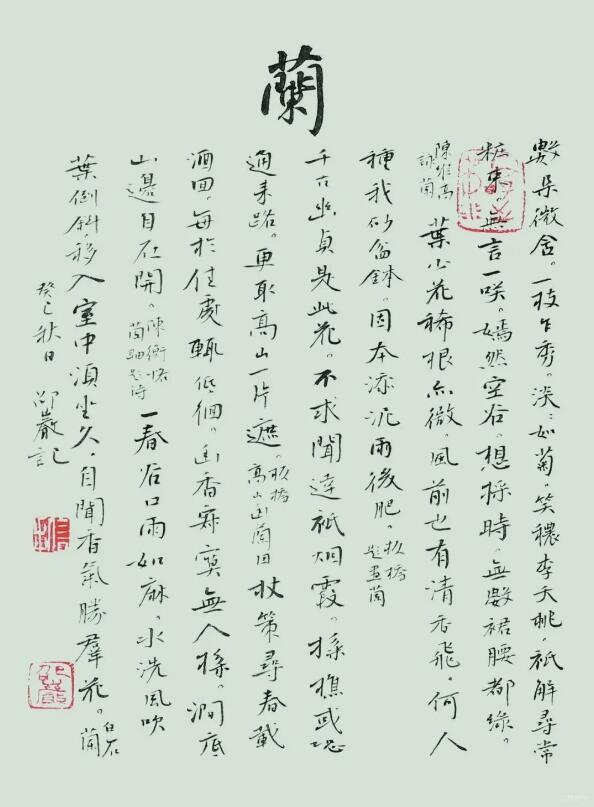 蘭
數朵微含。一枝乍秀。淡〻如菊。笑穠李夭桃。祇解尋常
粧束。無言一咲。嫣然空谷。想採時。無數裙腰都綠。
陳維高詠蘭 葉少花稀根亦微。風前也有清香飛。何人
種我砂盆鉢。因本添泥雨後肥。板橋題畫蘭
千古幽貞是此花。不求聞達祇烟霞。採樵或恐
通來路。更取高山一片遮。板橋高山幽蘭 杖策尋春載
酒回。每於佳處輒低徊。幽香寂寞無人採。澗底
山邊自在開。陳衡恪蘭軸題詩 一春谷口雨如麻。水洗風吹
葉倒斜移入室中須坐久。自聞香氣勝羣花。白石蘭
癸巳秋日 邵巖記
邵巖